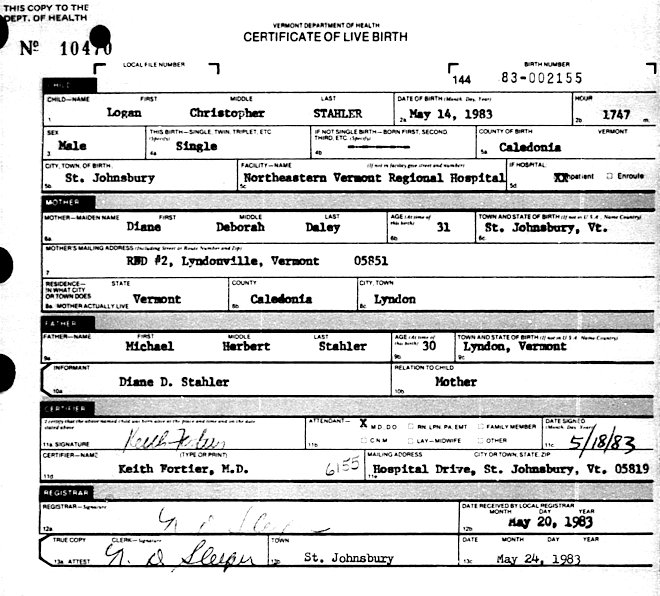 THIS COPY TO THE
DEPT. OF HEALTH
VERMONT DEPARTMENT OF HEALTH
CERTIFICATE OF LIVE BIRTH
Nº 10470
LOCAL FILE NUMBER
BIRTH NUMBER
144 83-002155
CHILD
CHILD—NAME FIRST MIDDLE LAST DATE OF BIRTH (Month, Day, Year) HOUR
1 Logan Christopher STAHLER 2a May 14, 1983 2b 1747 m.
SEX THIS BIRTH—SINGLE, TWIN, TRIPLET, ETC. (Specify) IF NOT SINGLE BIRTH—BORN FIRST, SECOND THIRD, ETC. (Specify) COUNTY OF BIRTH VERMONT
3 Male 4a Single 4b 5a Caledonia
CITY, TOWN, OF BIRTH FACILITY—NAME (If not in facility, give street and number) IF HOSPITAL
5b St. Johnsbury 5c Northeastern Vermont Regional Hospital 5d XX Inpatient ☐ Enroute
MOTHER
MOTHER—MAIDEN NAME FIRST MIDDLE LAST AGE (At time of this birth) TOWN AND STATE OF BIRTH (If not in U.S.A., Name Country)
6a Diane Deborah Daley 6b 31 6c St. Johnsbury, Vt.
MOTHER'S MAILING ADDRESS (Including Street or Route Number and Zip)
7 RWD #2, Lyndonville, Vermont 05851
RESIDENCE— IN WHAT CITY OR TOWN DOES STATE COUNTY CITY, TOWN
8a MOTHER ACTUALLY LIVE Vermont 8b Caledonia 8c Lyndon
FATHER
FATHER—NAME FIRST MIDDLE LAST AGE (At time of this birth) TOWN AND STATE OF BIRTH (If not in U.S.A., Name Country)
9a Michael Herbert Stahler 9b 30 9c Lyndon, Vermont
INFORMANT RELATION TO CHILD
10a Diane D. Stahler 10b Mother
CERTIFIER
I certify that the above named child was born alive at the place and time and on the date stated above ATTENDANT— X M.D. DO ☐ RN, LPN, PA, EMT ☐ FAMILY MEMBER DATE SIGNED (Month, Day, Year)
11a SIGNATURE Keith Fortier 11b ☐ C.N.M ☐ LAY—MIDWIFE ☐ OTHER 11c 5/18/83
CERTIFIER—NAME (TYPE OR PRINT) MAILING ADDRESS CITY OR TOWN, STATE, ZIP
11d Keith Fortier, M.D. 6155 11e Hospital Drive, St. Johnsbury, Vt. 05819
REGISTRAR
REGISTRAR—Signature DATE RECEIVED BY LOCAL REGISTRAR
MONTH DAY YEAR
12a N. D. Sleeper 12b May 20, 1983
TRUE COPY CLERK—Signature TOWN DATE MONTH DAY YEAR
13a ATTEST N. D. Sleeper 13b St. Johnsbury 13c May 24, 1983